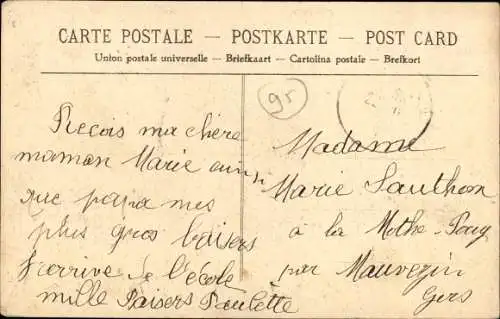 CARTE POSTALE — POSTKARTE — POST CARD
Union postale universelle — Briefkaart — Cartolina postale — Brefkort
95
Recois ma chère
maman Marie ainsi
que papa mes
plus gros baisers
J'arrive de l'école
mille Baisers Paulette
Madame
Marie Lauthom
à la Mothe-Pouy
par Mauvezin
Gers